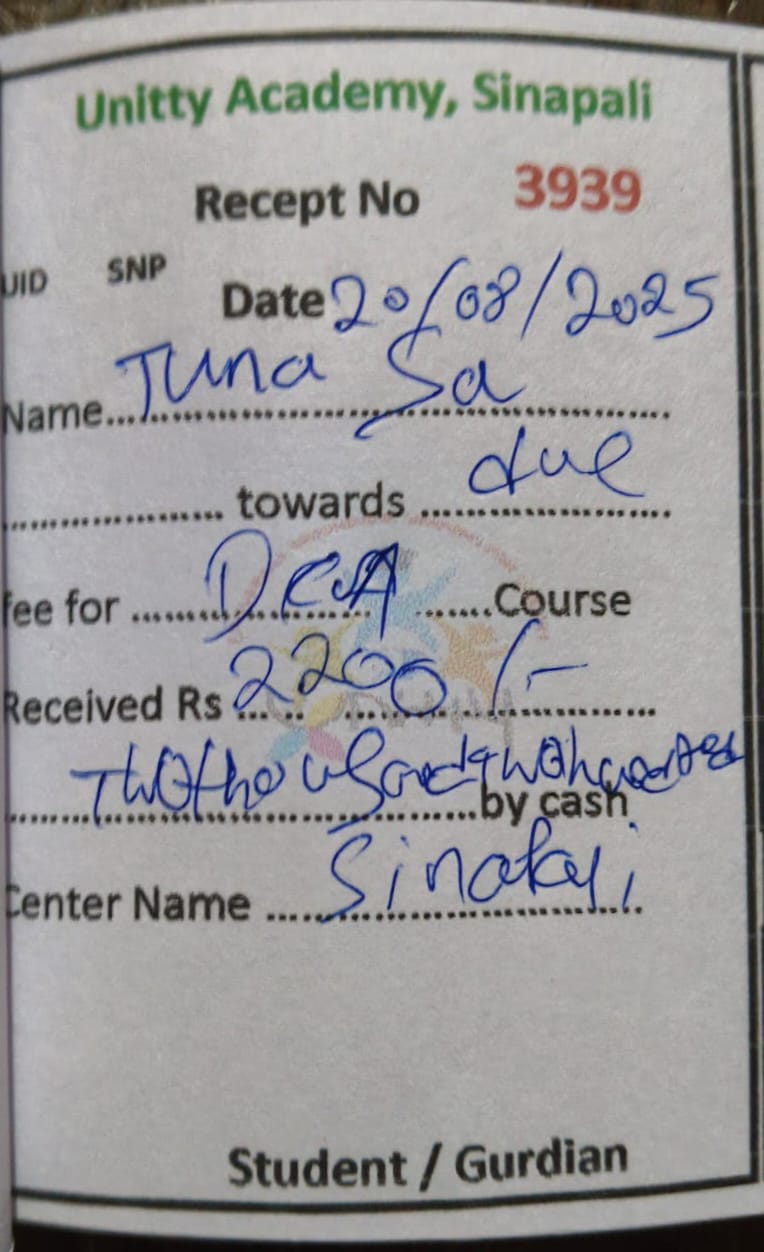 Unitty Academy, Sinapali
Recept No 3939
UID SNP
Date 20/08/2025
Name Tuna Sa
towards due
fee for DCA Course
Received Rs 2200/-
Two thousand two hundred
by cash
Center Name Sinapali
Student / Gurdian